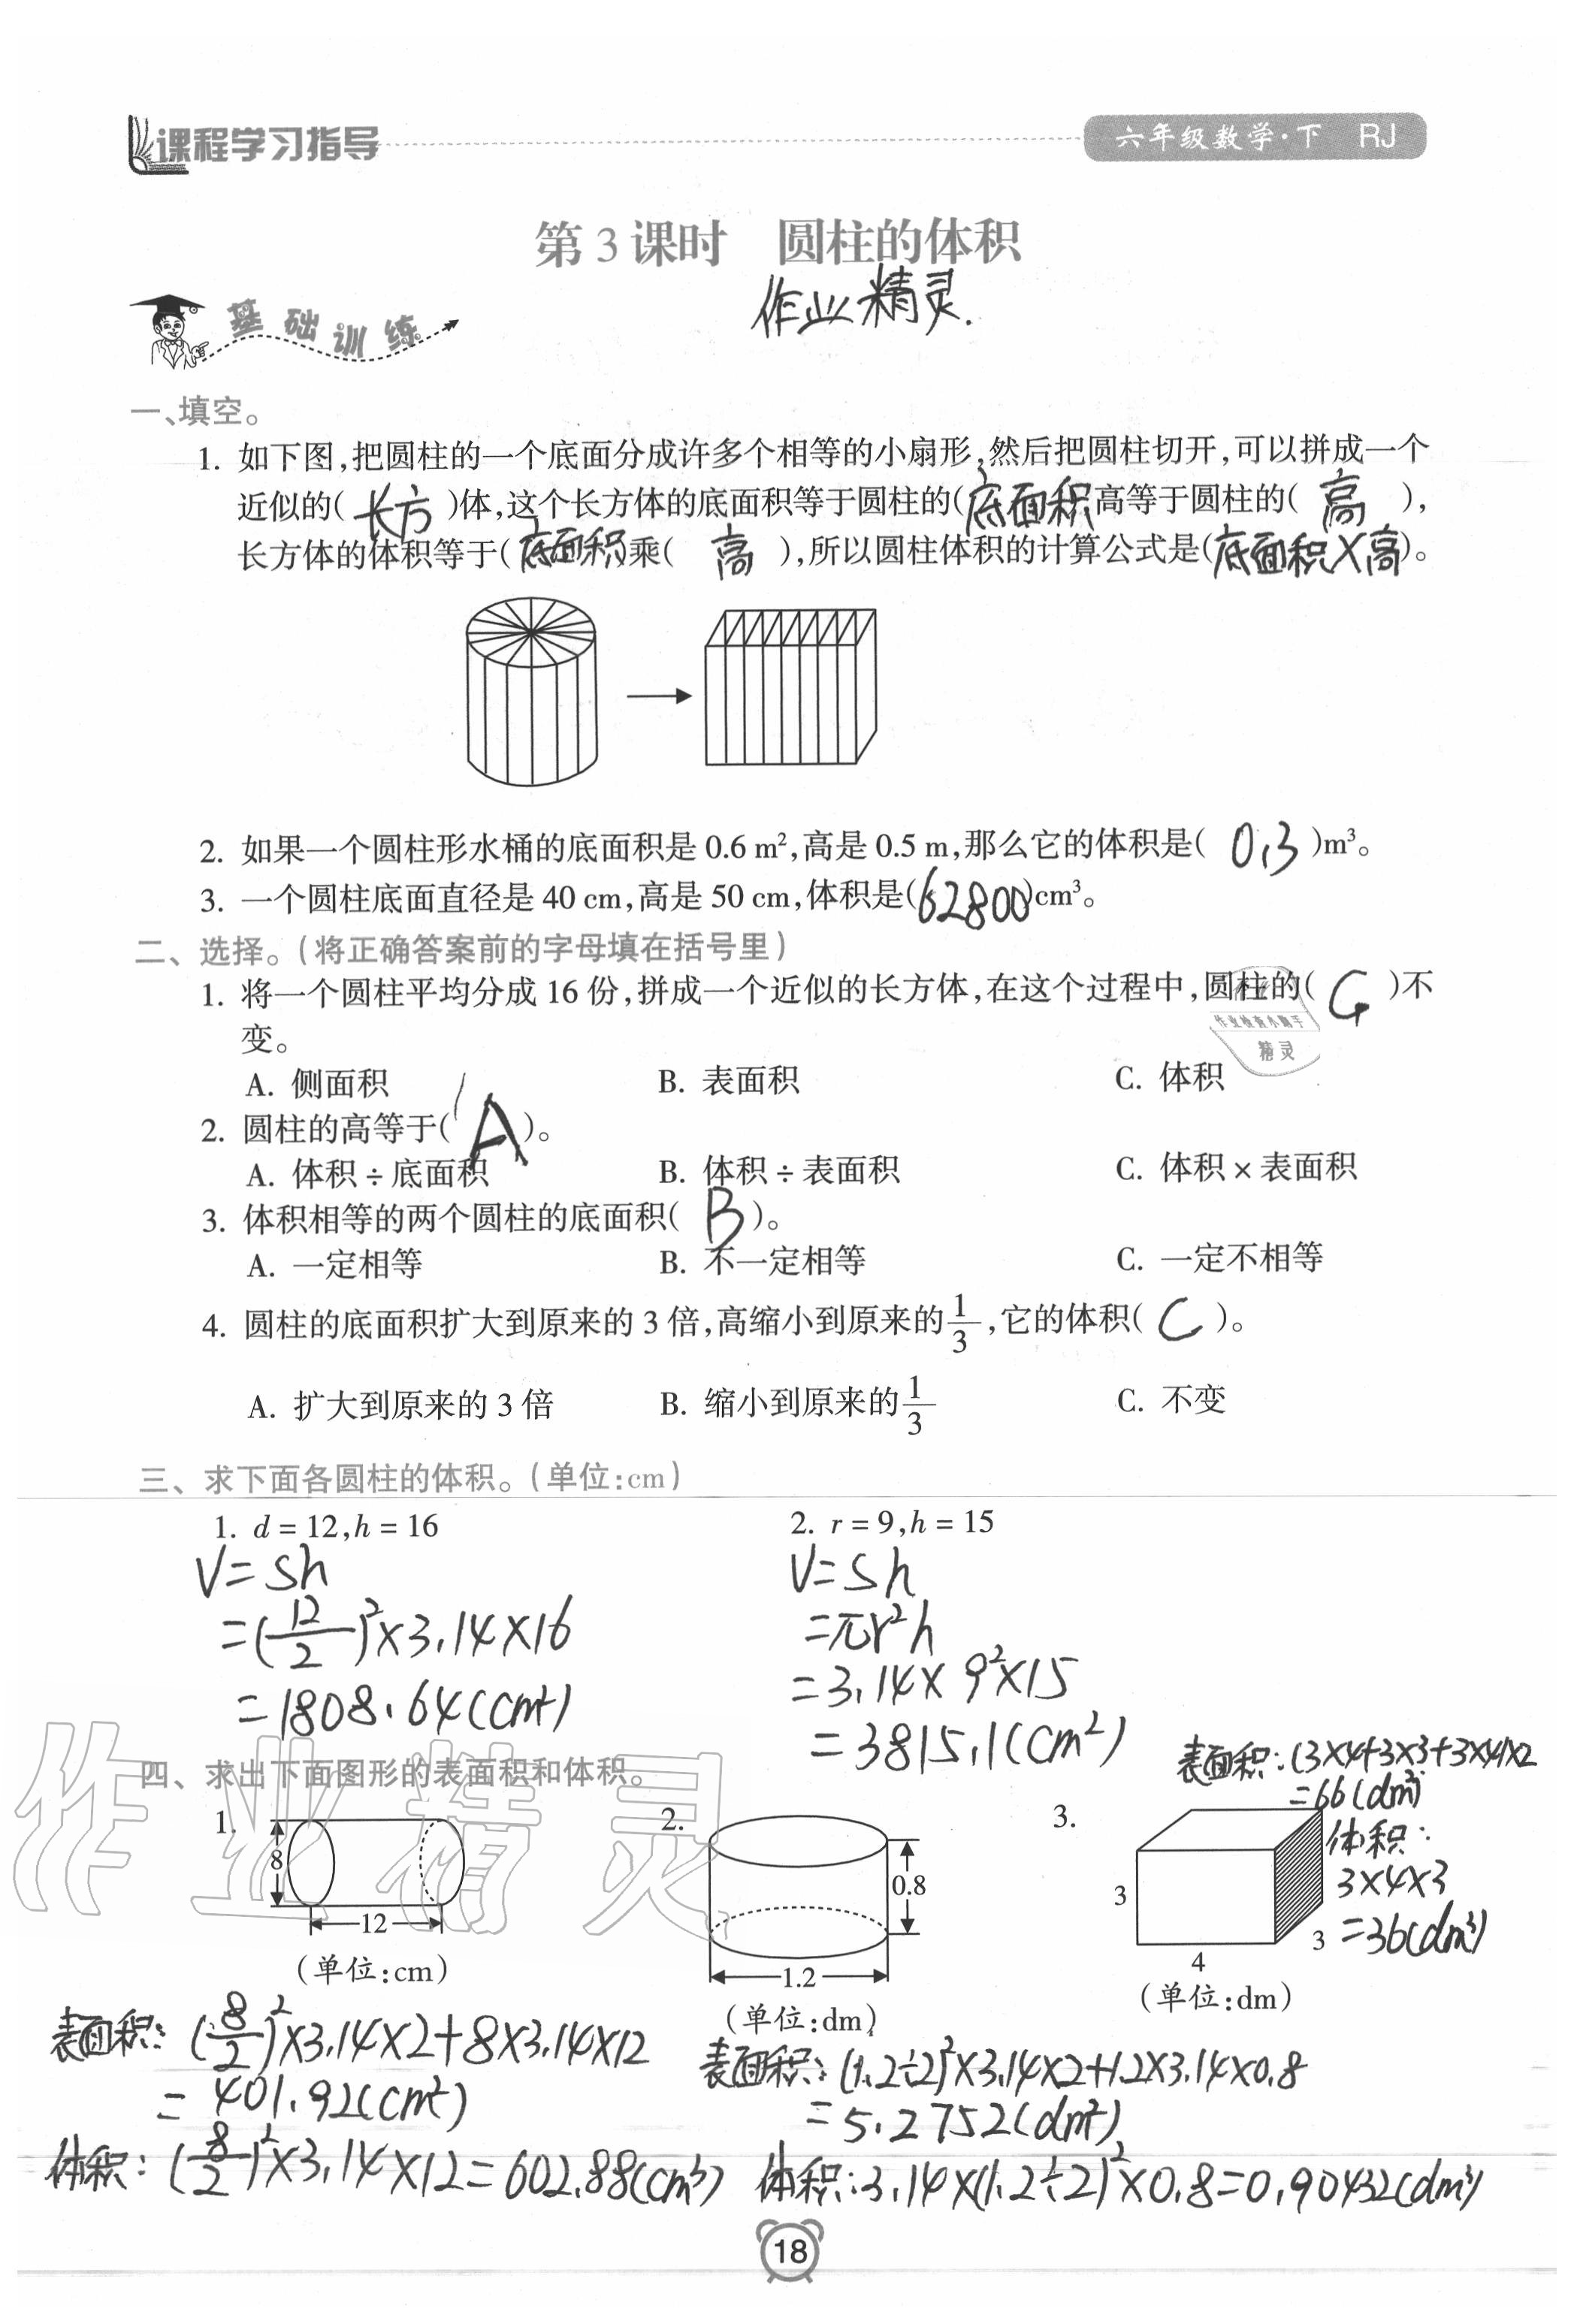 课程学习指导
六年级数学·下 RJ
第3课时 圆柱的体积
作业精灵.
基础训练
一、填空。
1. 如下图,把圆柱的一个底面分成许多个相等的小扇形,然后把圆柱切开,可以拼成一个
近似的( 长方 )体,这个长方体的底面积等于圆柱的(底面积 高等于圆柱的( 高 ),
长方体的体积等于(底面积)乘( 高 ),所以圆柱体积的计算公式是(底面积×高)。
2. 如果一个圆柱形水桶的底面积是 0.6 m²,高是 0.5 m,那么它的体积是( 0.3 )m³。
3. 一个圆柱底面直径是 40 cm,高是 50 cm,体积是(62800)cm³。
二、选择。(将正确答案前的字母填在括号里)
1. 将一个圆柱平均分成 16 份,拼成一个近似的长方体,在这个过程中,圆柱的( C )不
变。
作业
作业检查小助手
精灵
A. 侧面积 B. 表面积 C. 体积
2. 圆柱的高等于( A )。
A. 体积÷底面积 B. 体积÷表面积 C. 体积×表面积
3. 体积相等的两个圆柱的底面积( B )。
A. 一定相等 B. 不一定相等 C. 一定不相等
4. 圆柱的底面积扩大到原来的 3 倍,高缩小到原来的 1/3 ,它的体积( C )。
A. 扩大到原来的 3 倍 B. 缩小到原来的 1/3 C. 不变
三、求下面各圆柱的体积。(单位:cm)
1. d = 12,h = 16
V=Sh
=(12/2)²×3.14×16
=1808.64(cm²)
2. r = 9,h = 15
V=Sh
=πr²h
=3.14×9²×15
=3815.1(cm²)
四、求出下面图形的表面积和体积。
作业精灵
1.
8
12
(单位:cm)
表面积:(8/2)²×3.14×2+8×3.14×12
=401.92(cm²)
体积:(8/2)²×3.14×12=602.88(cm³)
2.
0.8
1.2
(单位:dm)
表面积:(1.2÷2)²×3.14×2+1.2×3.14×0.8
=5.2752(dm²)
体积:3.14×(1.2÷2)²×0.8=0.90432(dm³)
3.
3
4
3
(单位:dm)
表面积:(3×4+3×3+3×4)×2
=66(dm²)
体积:
3×4×3
=36(dm³)
18